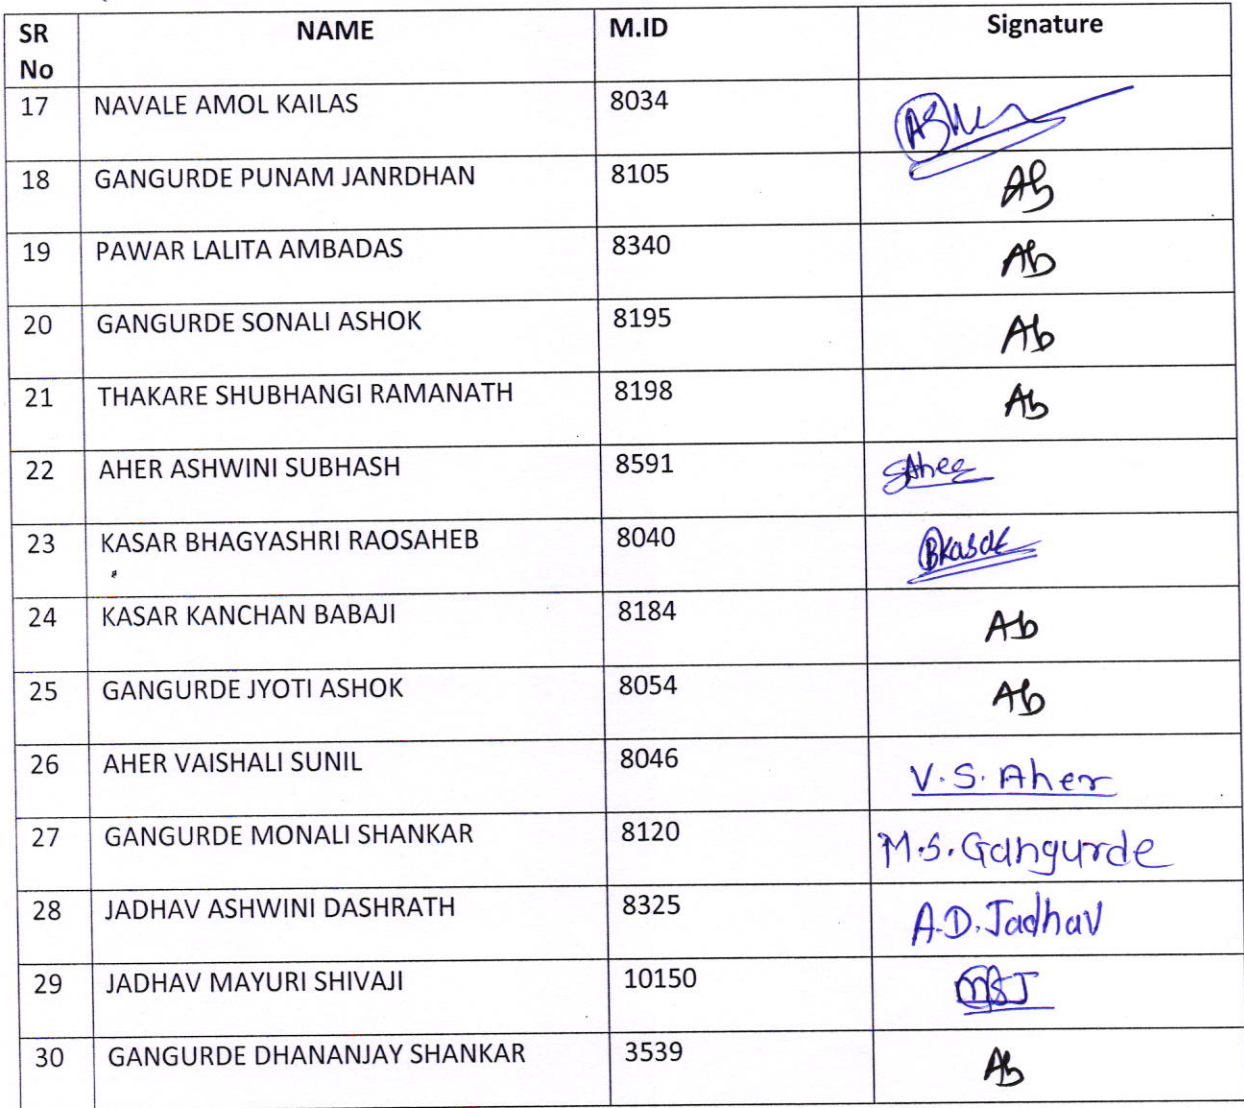 SR No NAME M.ID Signature
17 NAVALE AMOL KAILAS 8034
18 GANGURDE PUNAM JANRDHAN 8105 Ab
19 PAWAR LALITA AMBADAS 8340 Ab
20 GANGURDE SONALI ASHOK 8195 Ab
21 THAKARE SHUBHANGI RAMANATH 8198 Ab
22 AHER ASHWINI SUBHASH 8591 SAher
23 KASAR BHAGYASHRI RAOSAHEB 8040 BKasar
24 KASAR KANCHAN BABAJI 8184 Ab
25 GANGURDE JYOTI ASHOK 8054 Ab
26 AHER VAISHALI SUNIL 8046 V.S. Aher
27 GANGURDE MONALI SHANKAR 8120 M.S. Gangurde
28 JADHAV ASHWINI DASHRATH 8325 A.D. Jadhav
29 JADHAV MAYURI SHIVAJI 10150 MSJ
30 GANGURDE DHANANJAY SHANKAR 3539 Ab